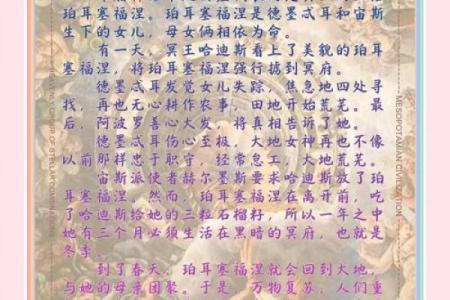 珀耳塞福涅。珀耳塞福涅是德墨忒耳和宙斯
生下的女儿，母女俩相依为命。
有一天，冥王哈迪斯看上了美貌的珀耳
塞福涅，将珀耳塞福涅强行掳到冥府。
德墨忒耳发觉女儿失踪，焦急地四处寻
找，再也无心耕作农事，田地开始荒芜。最
后，阿波罗善心大发，将真相告诉了她。
德墨忒耳伤心至极，大地女神再也不像
以前那样忠于职守，经常怠工，大地荒芜。
宙斯派使者赫尔墨斯要求哈迪斯放了珀
耳塞福涅。然而，珀耳塞福涅在离开前，吃
了哈迪斯给她的三粒石榴籽，所以一年之中
她有三个月必须生活在黑暗的冥府，也就是
冬季。
到了春天，珀耳塞福涅就会回到大地，
与她的母亲团聚。于是，万物复苏，人们重
MESOPOTAMIAN CIVILIZATION